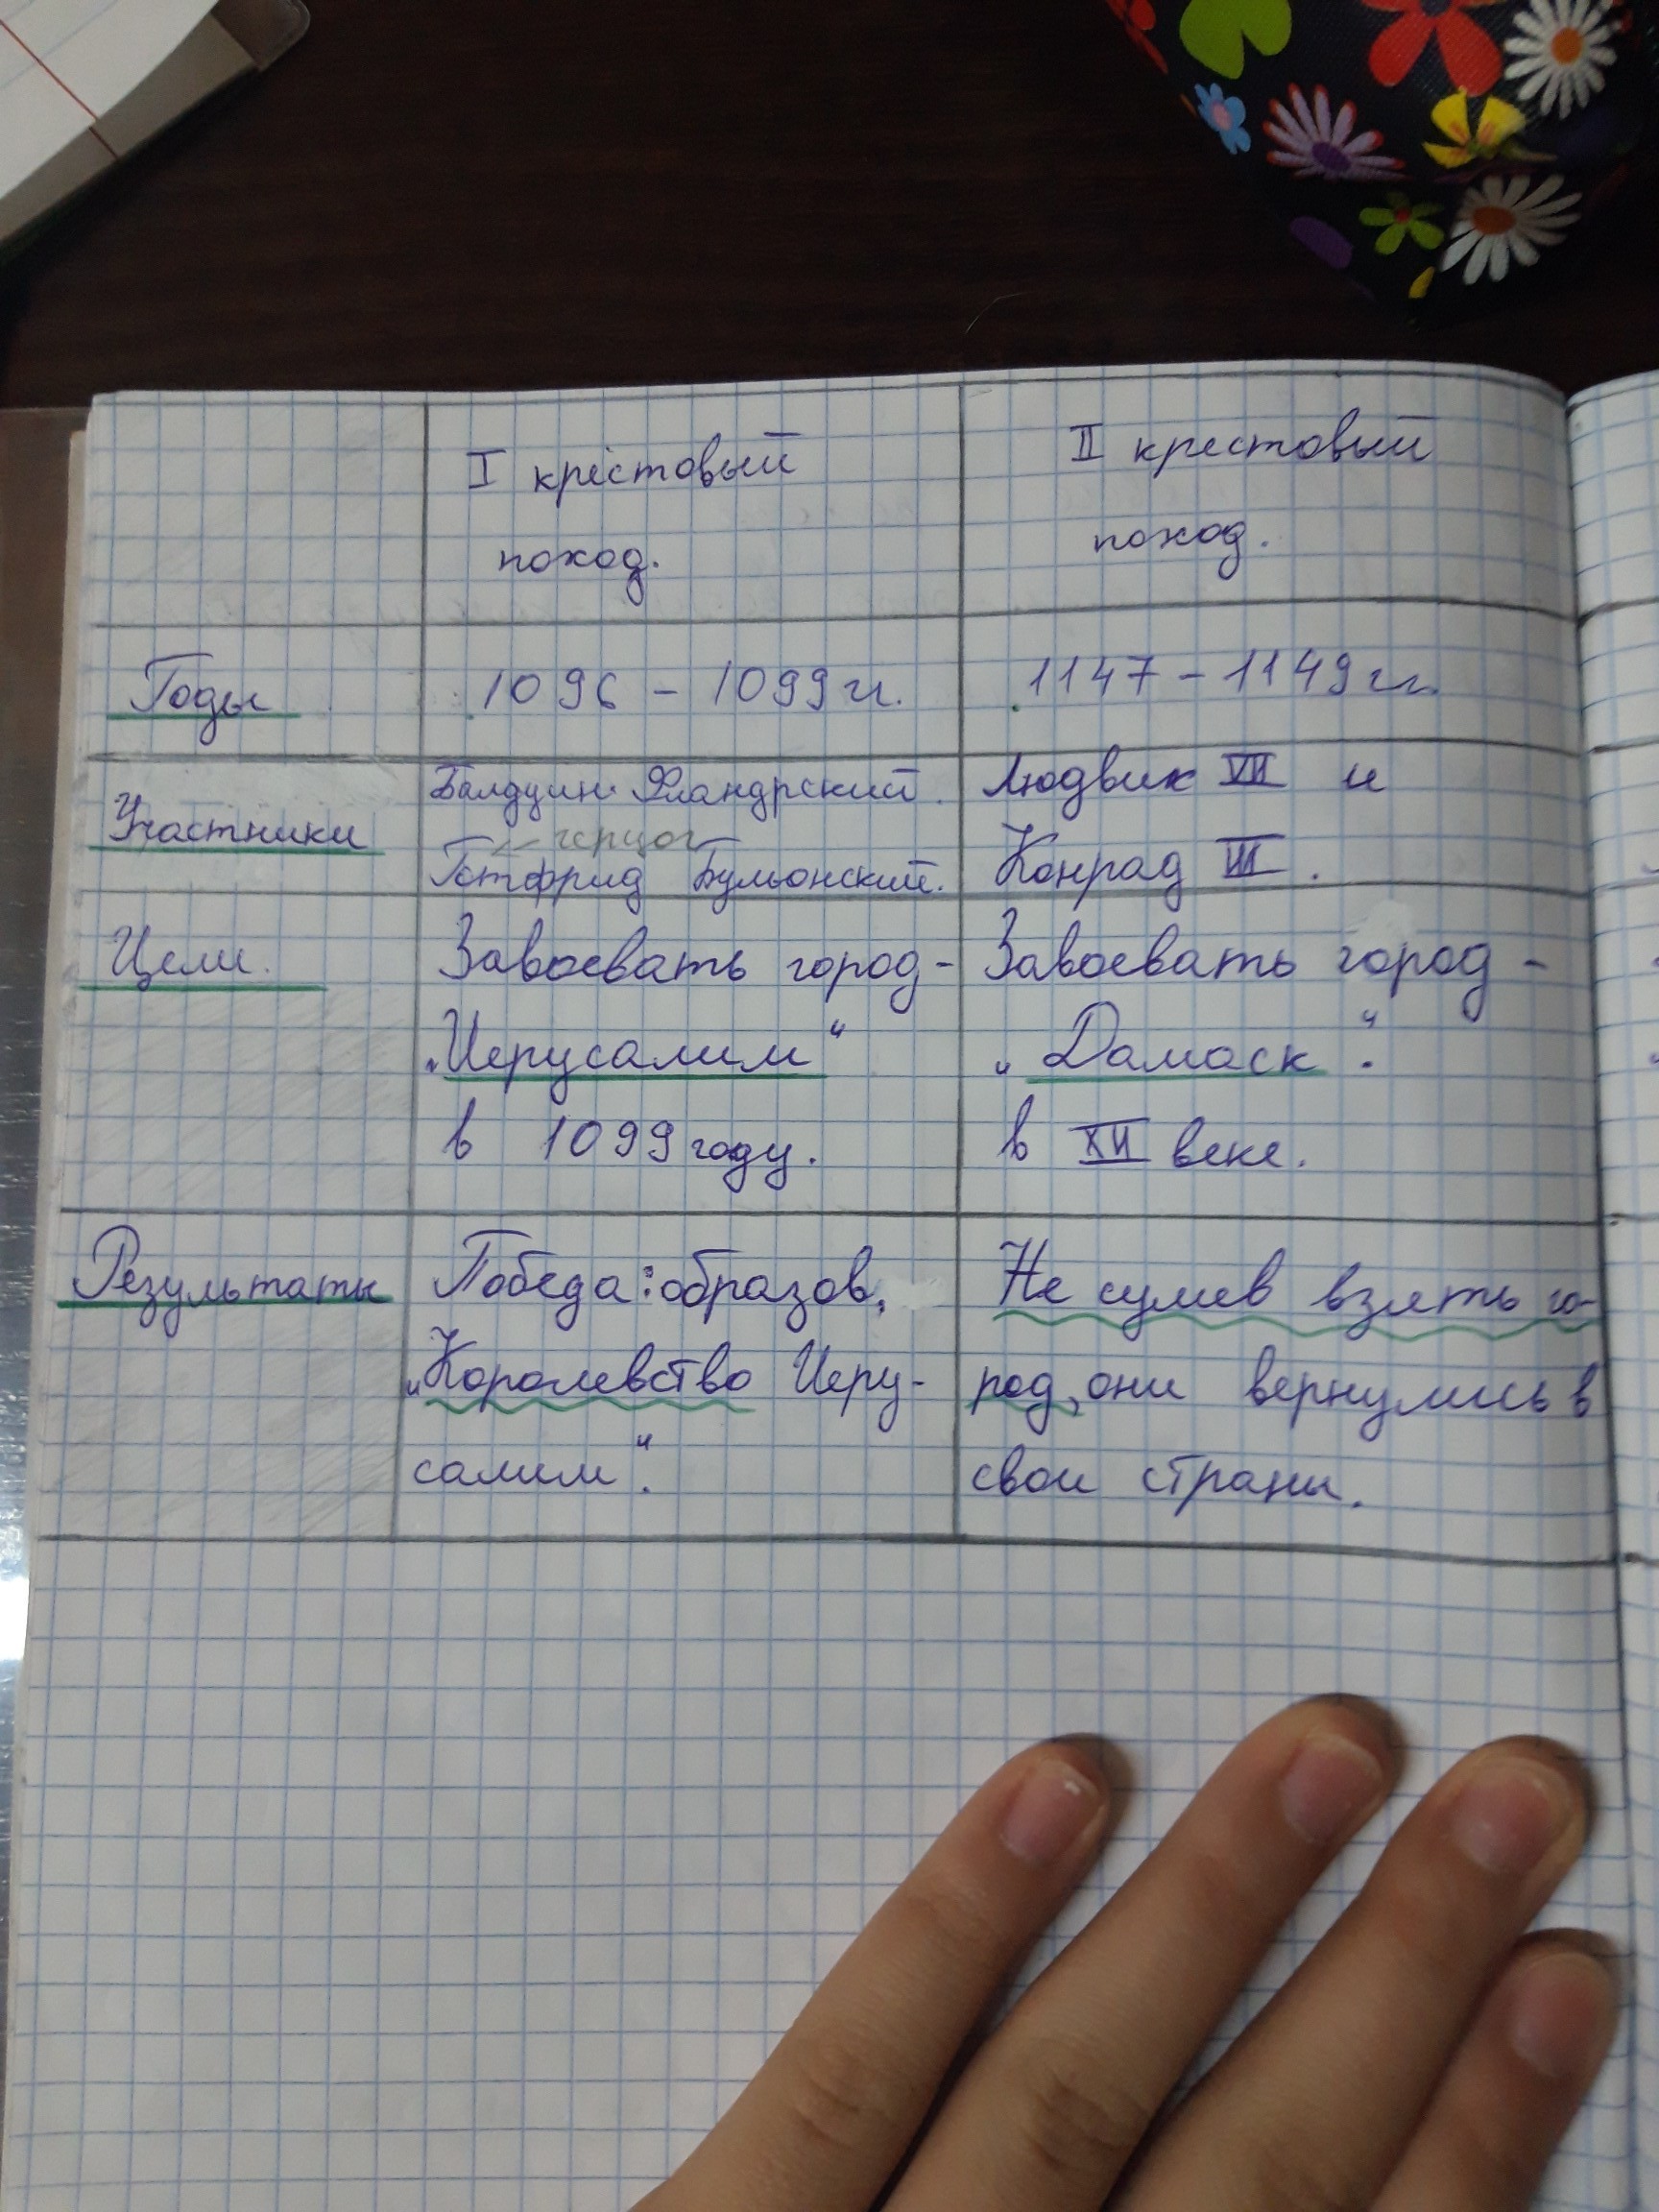 I крестовый
поход.
II крестовый
поход.
Годы
1096 - 1099 гг.
1147 - 1149 гг.
Участники
Балдуин Фландрский.
герцог
Готфрид Бульонский.
Людвик VII и
Конрад III.
Цели.
Завоевать город-
„Иерусалим“
в 1099 году.
Завоевать город -
„Дамаск“.
в XII веке.
Результаты
Победа: образов.
„Королевство Иеру-
салим“.
Не сумев взять го-
род, они вернулись в
свои страны.